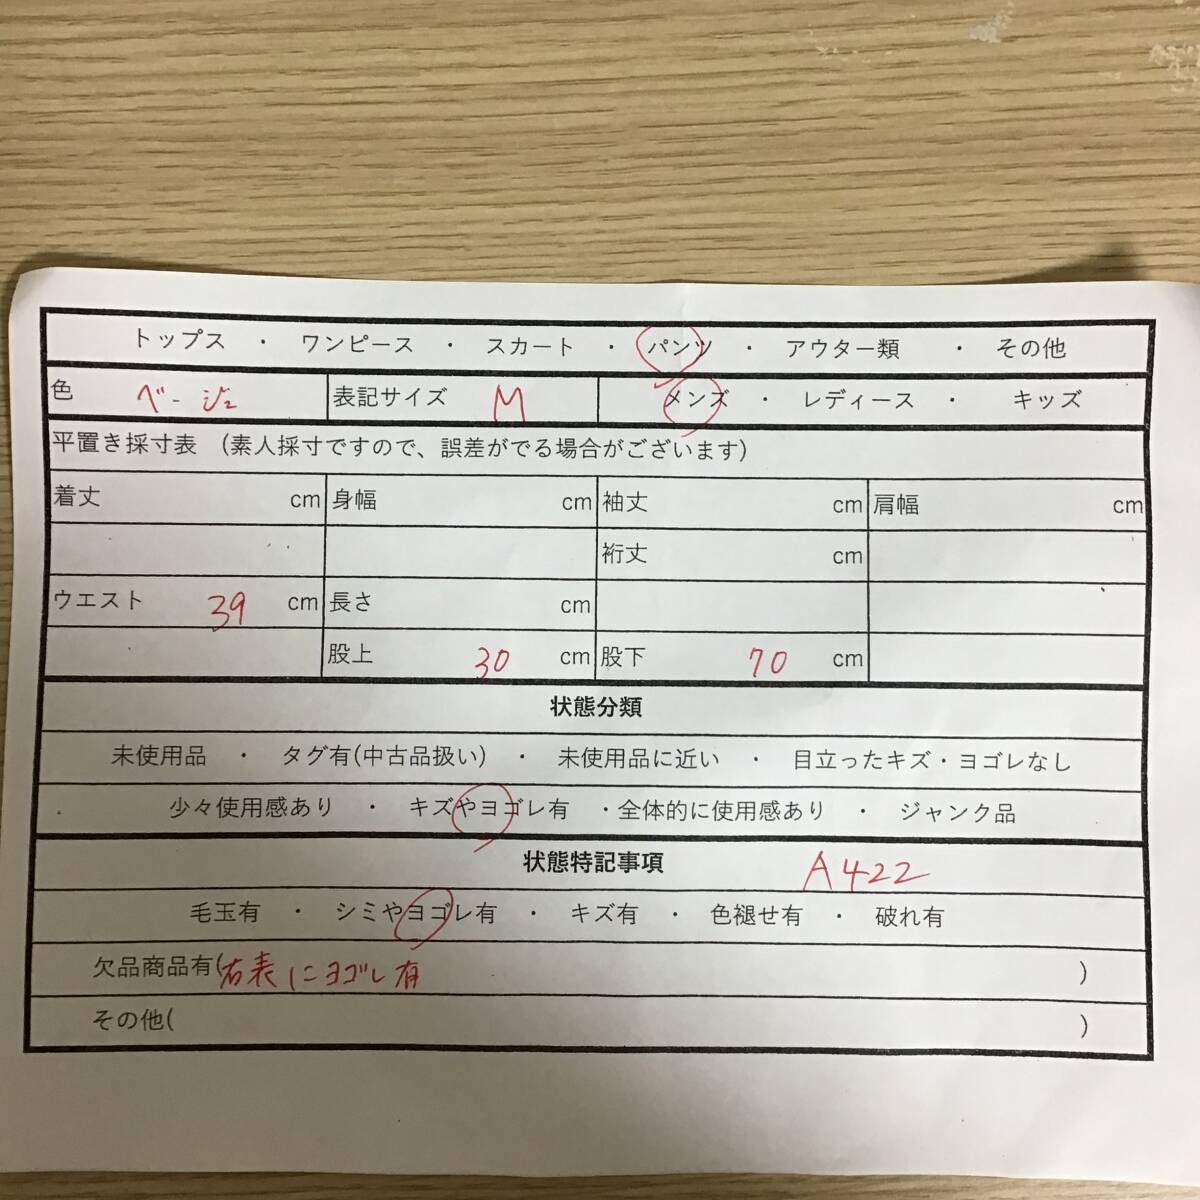 トップス ・ ワンピース ・ スカート ・ パンツ ・ アウター類 ・ その他
色 ベージュ 表記サイズ M メンズ ・ レディース ・ キッズ
平置き採寸表 (素人採寸ですので、誤差がでる場合がございます)
着丈 cm 身幅 cm 袖丈 cm 肩幅 cm
裄丈 cm
ウエスト 39 cm 長さ cm
股上 30 cm 股下 70 cm
状態分類
未使用品 ・ タグ有(中古品扱い) ・ 未使用品に近い ・ 目立ったキズ・ヨゴレなし
少々使用感あり ・ キズやヨゴレ有 ・全体的に使用感あり ・ ジャンク品
状態特記事項 A422
毛玉有 ・ シミやヨゴレ有 ・ キズ有 ・ 色褪せ有 ・ 破れ有
欠品商品有(右表にヨゴレ有 )
その他( )